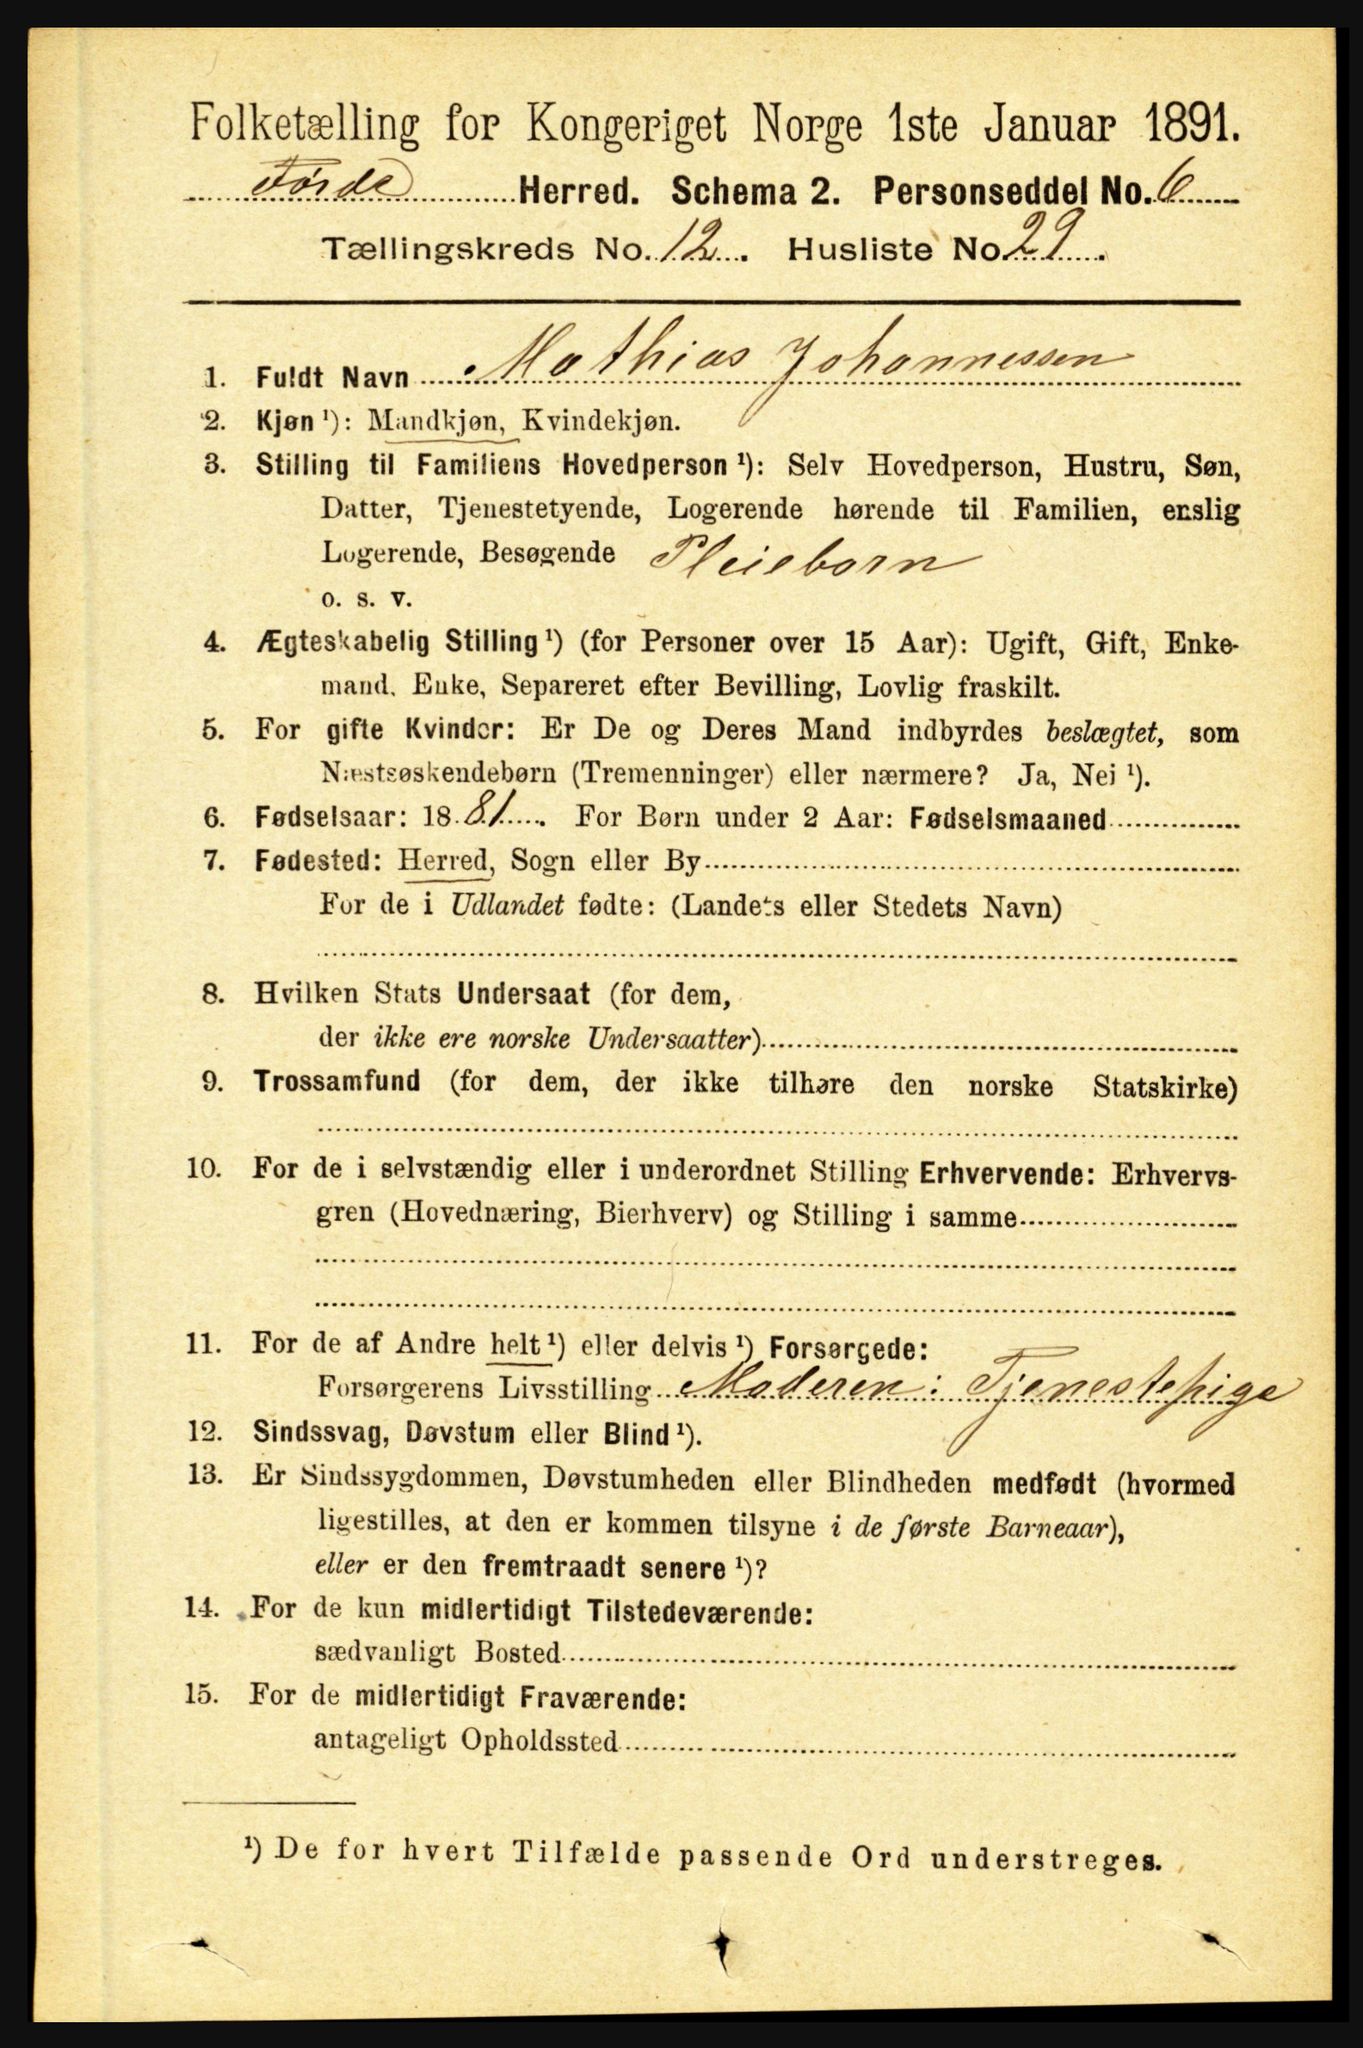 Folketælling for Kongeriget Norge 1ste Januar 1891.
Førde Herred. Schema 2. Personseddel No. 6
Tællingskreds No. 12. Husliste No. 29.
1. Fuldt Navn Mathias Johannessen
2. Kjøn ¹): Mandkjøn, Kvindekjøn.
3. Stilling til Familiens Hovedperson ¹): Selv Hovedperson, Hustru, Søn,
Datter, Tjenestetyende, Logerende hørende til Familien, enslig
Logerende, Besøgende Pleiebarn
o. s. v.
4. Ægteskabelig Stilling ¹) (for Personer over 15 Aar): Ugift, Gift, Enke-
mand, Enke, Separeret efter Bevilling, Lovlig fraskilt.
5. For gifte Kvinder: Er De og Deres Mand indbyrdes beslægtet, som
Næstsøskendebørn (Tremenninger) eller nærmere? Ja, Nei ¹).
6. Fødselsaar: 1881. For Børn under 2 Aar: Fødselsmaaned
7. Fødested: Herred, Sogn eller By
For de i Udlandet fødte: (Landets eller Stedets Navn)
8. Hvilken Stats Undersaat (for dem,
der ikke ere norske Undersaatter)
9. Trossamfund (for dem, der ikke tilhøre den norske Statskirke)
10. For de i selvstændig eller i underordnet Stilling Erhvervende: Erhvervs-
gren (Hovednæring, Bierhverv) og Stilling i samme
11. For de af Andre helt ¹) eller delvis ¹) Forsørgede:
Forsørgerens Livsstilling Moderen: Tjenestepige
12. Sindssvag, Døvstum eller Blind ¹).
13. Er Sindssygdommen, Døvstumheden eller Blindheden medfødt (hvormed
ligestilles, at den er kommen tilsyne i de første Barneaar),
eller er den fremtraadt senere ¹)?
14. For de kun midlertidigt Tilstedeværende:
sædvanligt Bosted
15. For de midlertidigt Fraværende:
antageligt Opholdssted
¹) De for hvert Tilfælde passende Ord understreges.